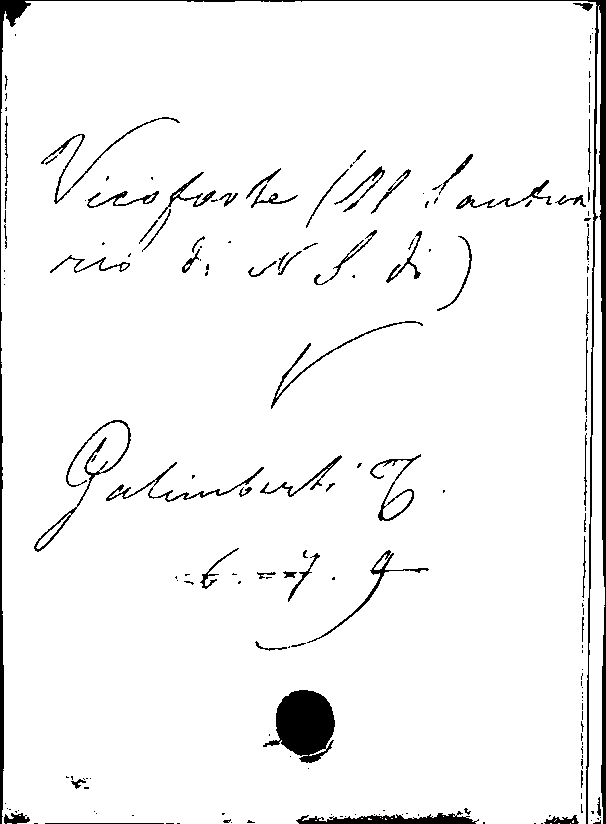 Vicoforte (Il Santua
rio di N S. di)
V
Galimberti T.
6. 7. 9